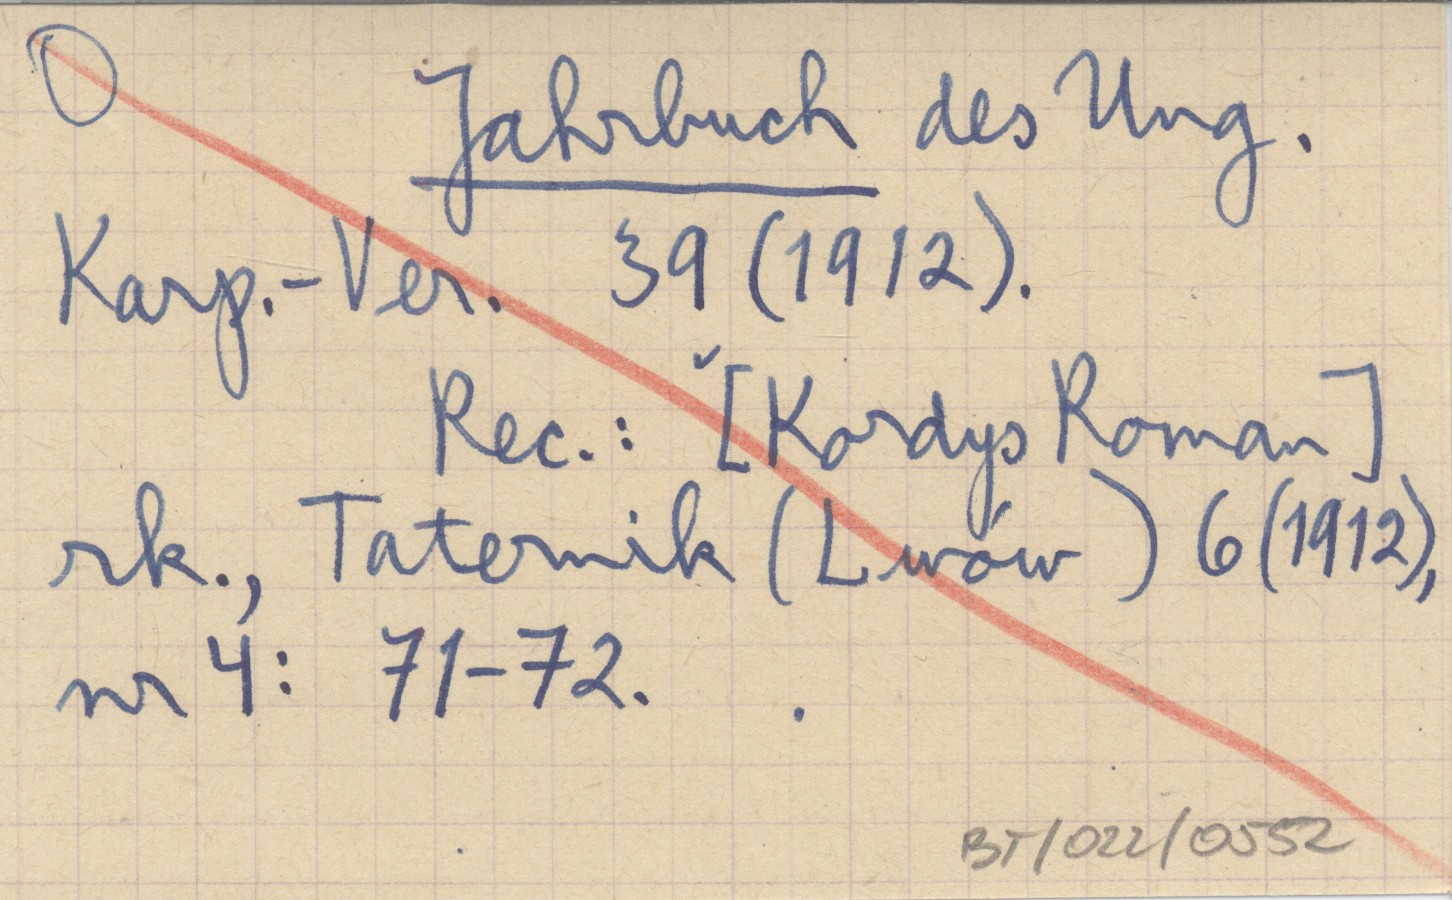 Jahrbuch des Ung.
Karp.-Ver. 39 (1912).
Rec.: [Kordys Roman]
rk., Taternik (Lwów) 6 (1912),
nr 4: 71-72.
BT/022/0552